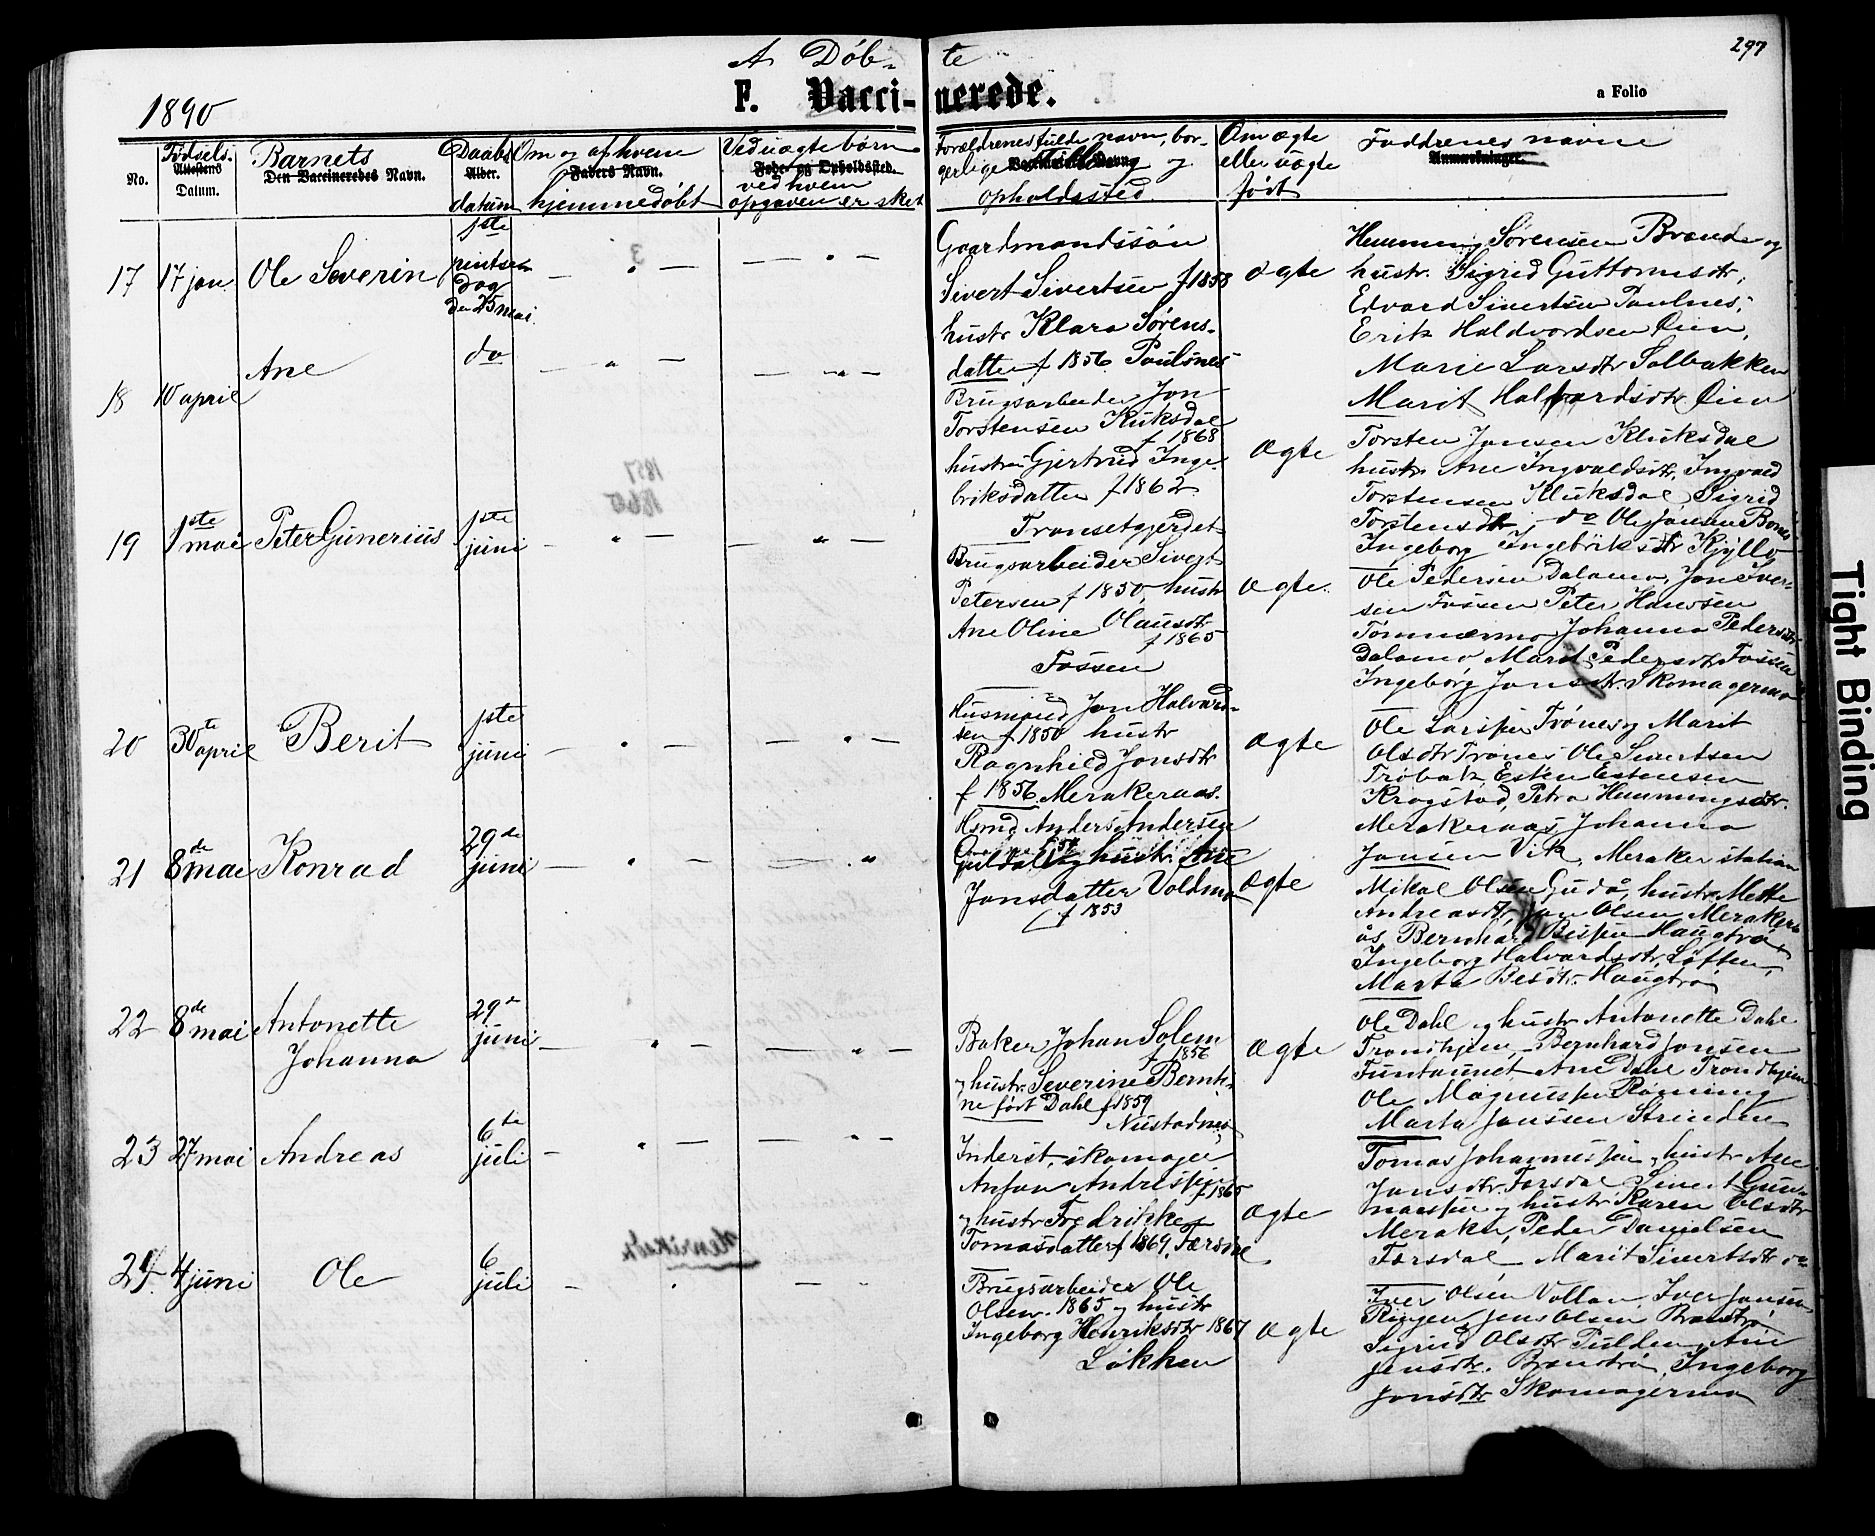 297
A Døb- te
F. Vacci- nerede.
a Folio
1890
No.
Fødsels-
Attestens
Datum.
Barnets
Den Vaccineredes Navn.
Daabs
Alder.
datum
Om og af hvem
Faders Navn.
hjemmedøbt
Ved uægte børn
Føde- og Opholdssted.
ved hvem
opgaven er sket
Forældrenes fulde navn, bor-
gerlige Stilling og
opholdssted
Om ægte
eller uægte
født
Faddrenes navne
Anmærkninger
17
17 jan.
Ole Severin
1ste
pintse
dag
den 25 mai
Gaardmandssøn
Sivert Sivertsen f 1858
hustr Klara Sørens-
datter f 1856 Paulsnes
ægte
Hemming Sørensen Brænde og
hustr. Sigrid Guttormsdtr,
Edvard Sivertsen Paulnes,
Erik Haldvordsen Øien,
Marie Larsdtr Solbakken
Marit Halvardsdtr Øien
18
10 april
Ane
do
Brugsarbeider Jon
Torstensen Kluksdal
f 1868
hustru Gjertrud Inge-
briksdatter f 1862
Fransetgjerdet
Ægte
Torsten Jonsen Kluksdal
hustr. Ane Ingvaldsdtr, Ingvald
Torstensen Kluksdal, Sigrid
Torstensdtr, do Ole Jonsen Bomo
Ingeborg Ingebriksdtr Kjyllo
19
1ste
mai
Peter Gunerius
1ste
juni
Brugsarbeider Sivert
Petersen f 1850, hustr
Ane Oline Olausdtr
f 1865
Fossen
ægte.
Ole Pedersen Dalamo, Jon Iver-
sen Fossen Peter Hansen
Tømmermo Johanna Pedersdtr
Dalamo Marit Pedersdtr Fossen
Ingeborg Jonsdtr. Skomagermo
20
30te
april
Berit
1ste
juni
Husmand Jon Halvard-
sen f 1850 hustr
Ragnhild Jonsdtr
f 1856 Merakeraas.
ægte
Ole Larssen Trøner og Marit
Olsdtr Trønes Ole Sivertsen
Trøbak, Esten Estensen
Krogstad, Petra Hemmingsdtr.
Merakeraas Johanna
Jonsen Vik, Meraker station
21
8de
mai
Konrad
29de
juni
Hsmd Anders Andersen
og hustr. Ane
Jonsdatter Voldmo
f 1853
ægte
Mikal Olsen Gudå, hustr. Mette
Andreasdtr, Jon Olsen Meraker-
ås Bernhard Bessen Haugtrø,
Ingeborg Halvardsdtr, Løften,
Marta Besdtr. Haugtrø
22
8de
mai
Antonette
Johanna
29de
juni
Baker Johan Solem
f 1856
og hustr. Severine Bernti-
ne født Dahl f 1859
Nustadnes
ægte
Ole Dahl og hustr Antonette Dahl
Trondhjem, Bernhard Jonsen
Funtaunet, Ane Dahl Trondhjem
Ole Magnussen Røgning
Marta Jonsen Strinden
23
27 mai
Andreas
6te
juli
Inderst, skomager
Anton Andressen
f 1865
og hustr Fredrikke
Tomasdatter f 1869, Færsdal
Ægte
Tomas Johannessen, hustr Ane
Jonsdtr, Færsdal, Sivert Gun-
narssen og hustr Karen Olsdtr
Meraker, Peder Danielsen
Færsdal, Marit Sivertsdtr do
24
4 juni
Ole
6
juli
Brugsarbeider Ole
Olsen. 1865 og hustr
Ingeborg Henriksdtr 1867
Løkken
ægte
Iver Olsen Vollan, Iver Jonsen
Ringen, Jens Olsen Brændtrø
Sigrid Olsdtr Pulden, Ane
Jensdtr. Brændtrø, Ingeborg
Jonsdtr Skomagermo
Tight Binding